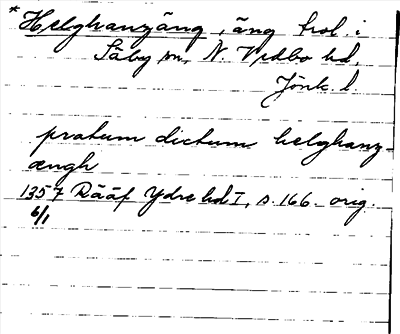 *Helghanzäng, äng trol. i
Säby sn, N. Vedbo hd,
Jönk. l.
pratum dictum helghanz-
ængh
1357 Rääf Ydre hd I, s. 166. orig.
6/1